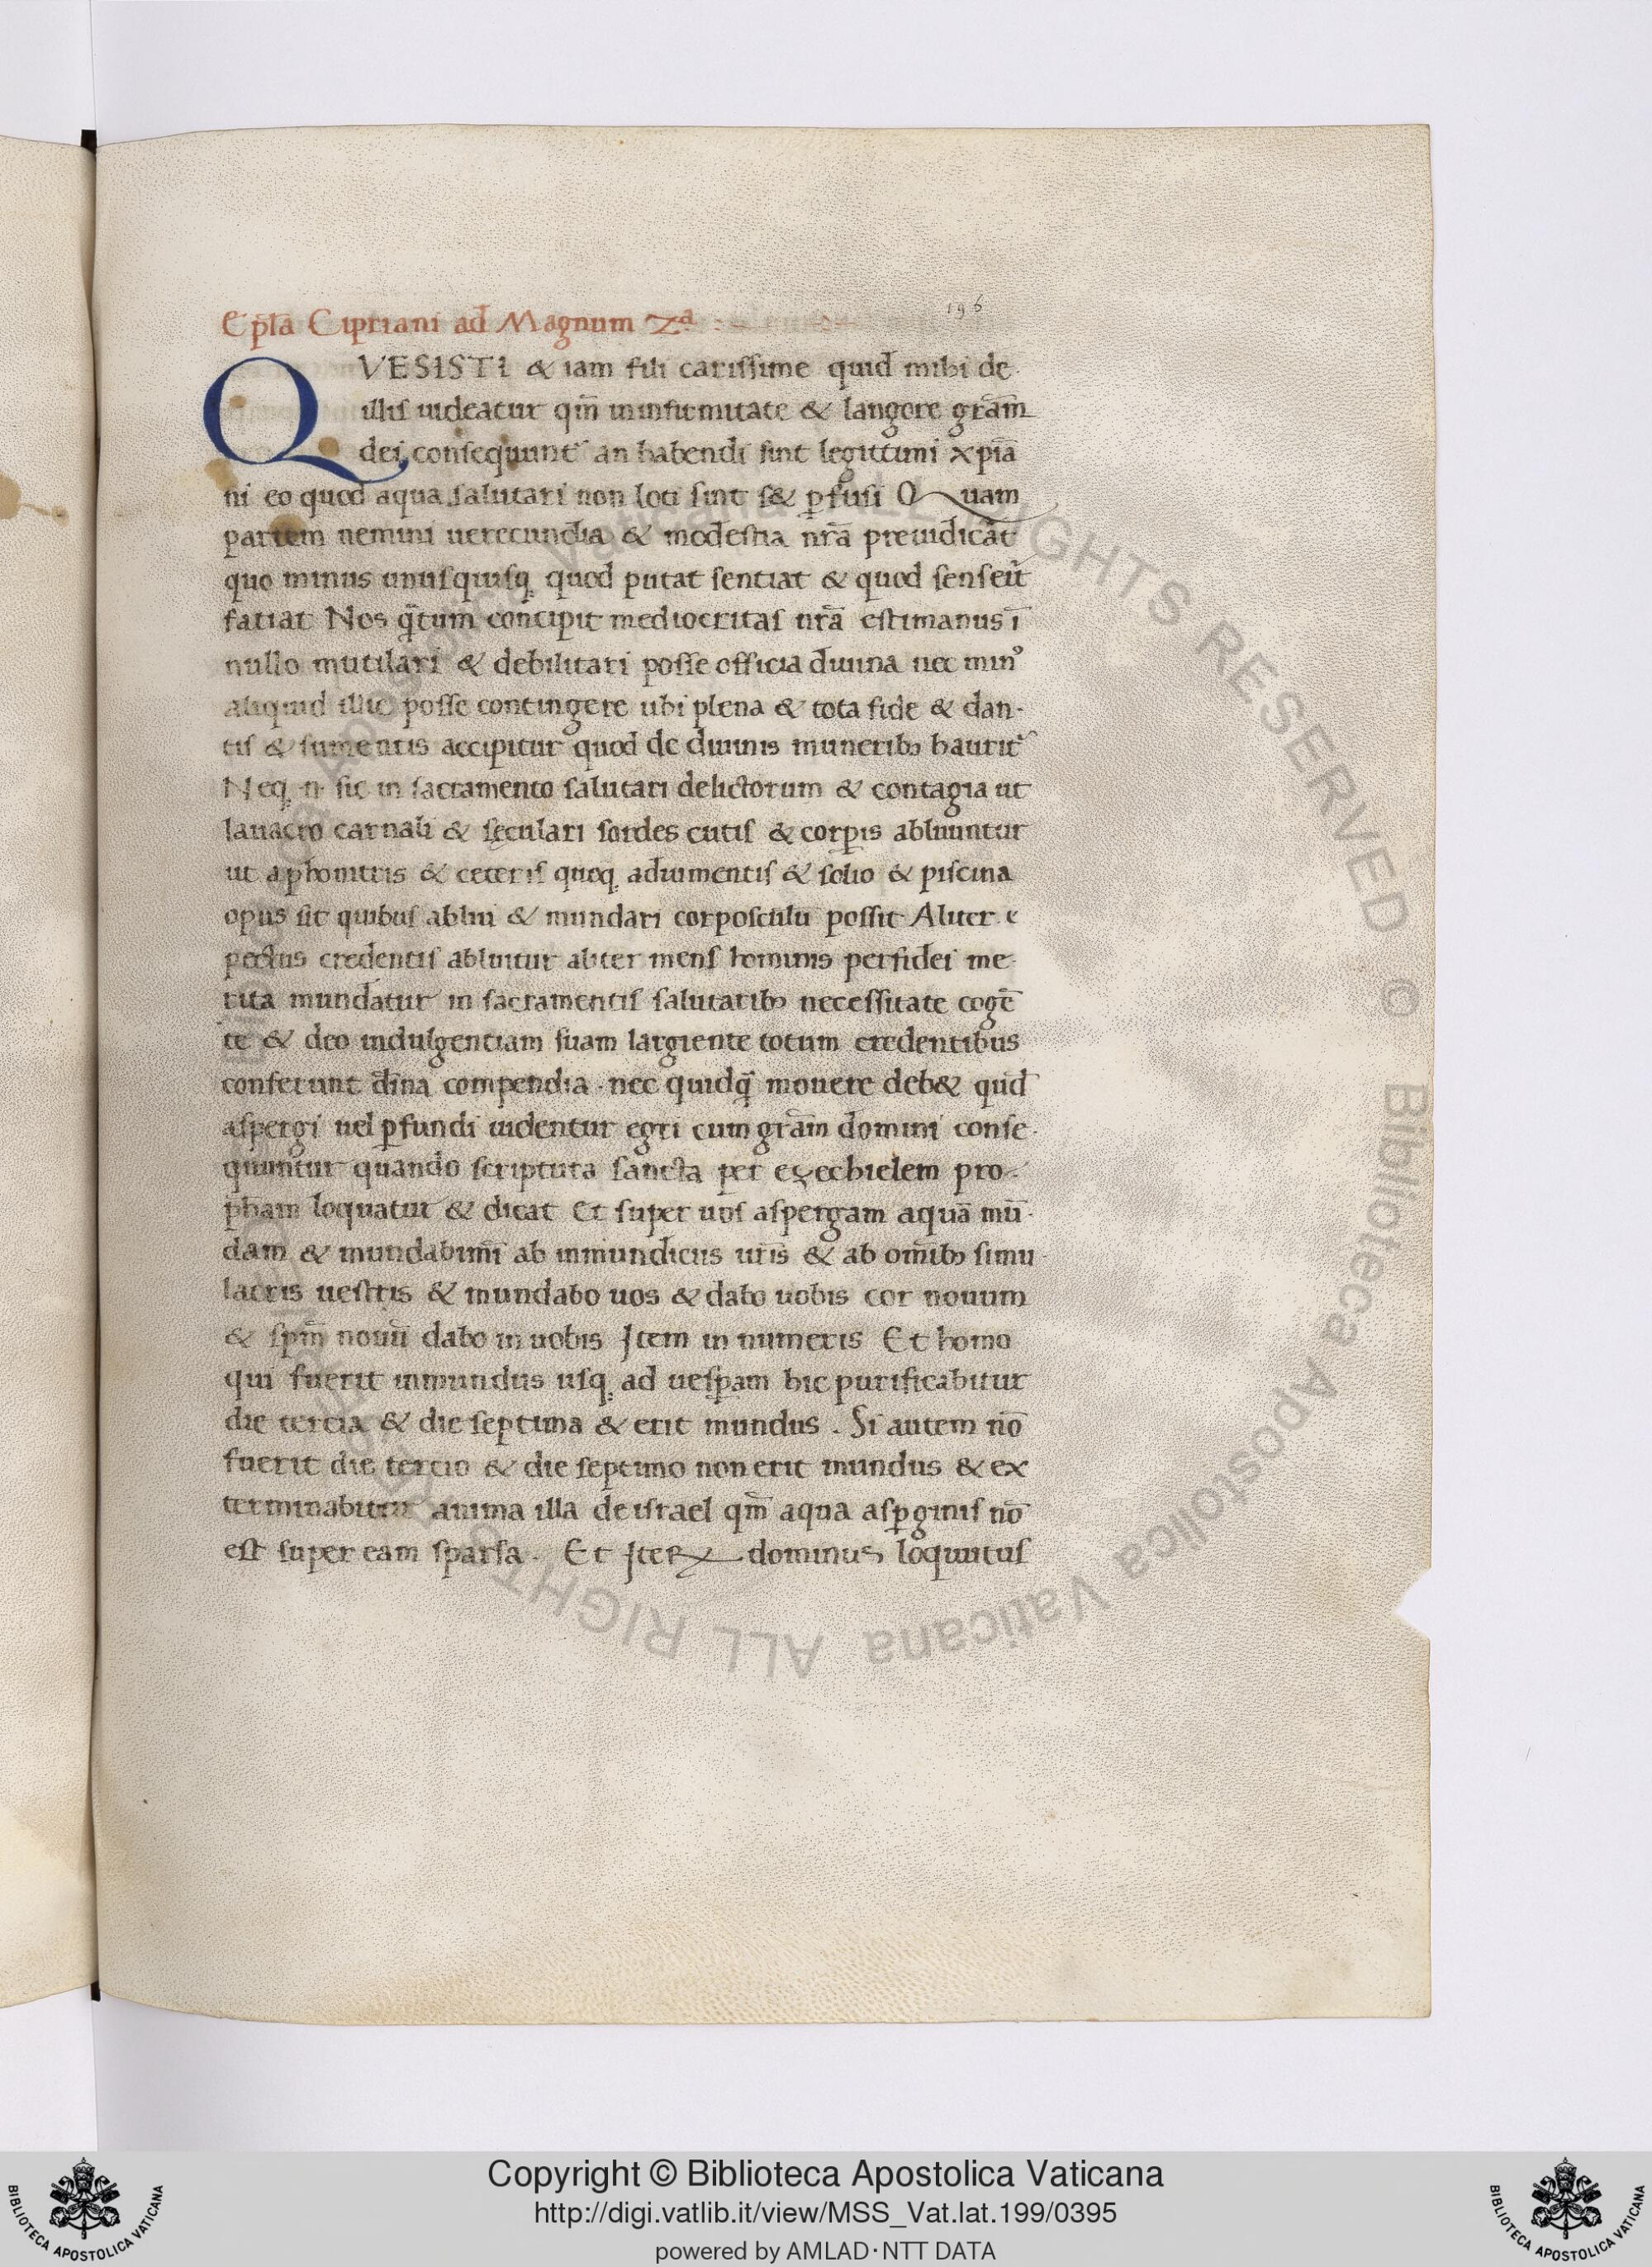 196
Ep̄la Cipriani ad Magnum 2ª
QVESISTI & iam fili carissime quid mihi de
illis uideatur qm̄ in infirmitate & langore gr̄am
dei consequunt᷑ an habendi sint legittimi xp̄ia
ni eo quod aqua salutari non loti sint s& ꝑfusi Quam
partem nemini uerecundia & modestia nr̄a preiudicat
quo minus unusquisq; quod putat sentiat & quod senserit
fatiat Nos q̄tum concipit mediocritas nr̄a estimanus ī
nullo mutilari & debilitari posse officia diuina nec minꝰ
aliquid illic posse contingere ubi plena & tota fide & dan-
tis & sumentis accipitur quod de diuinis muneribꝫ haurit᷑
Neq; n. sic in sacramento salutari delictorum & contagia ut
lauacro carnali & sęculari sordes cutis & corꝑis abluuntur
ut aphonitris & ceteris queq; adiumentis & solio & piscina
opus sit quibus ablui & mundari corposculū possit Aliter e
pectus credentis abluitur aliter mens hominis per fidei me
rita mundatur in sacramentis salutaribꝫ necessitate cogē
te & deo indulgentiam suam largiente totum credentibus
conferunt diīna compendia . nec quidq̄ mouere deb& quod
aspergi uel ꝑfundi uidentur egri cum gr̄am domini conse-
quuntur quando scriptura sancta per ezechielem pro-
pham loquatur & dicat Et super uos aspergam aquā mū-
dam & mundabimī ab inmundicus ur̄is & ab om̄ibꝫ simu
lacris uestris & mundabo uos & dabo uobis cor nouum
& sp̄m nouū dabo in uobis Item in numeris Et homo
qui fuerit inmundus usq; ad uesꝑam hic purificabitur
die tercia & die septima & erit mundus . Si autem nō
fuerit die tercio & die septimo non erit mundus & ex
terminabitur anima illa de israel qm̄ aqua asꝑginis nō
est super eam sparsa . Et Iteꝝ dominus loquutus
Copyright © Biblioteca Apostolica Vaticana
http://digi.vatlib.it/view/MSS_Vat.lat.199/0395
powered by AMLAD·NTT DATA
BIBLIOTECA APOSTOLICA VATICANA
BIBLIOTECA APOSTOLICA VATICANA
ALL RIGHTS RESERVED © Biblioteca Apostolica Vaticana